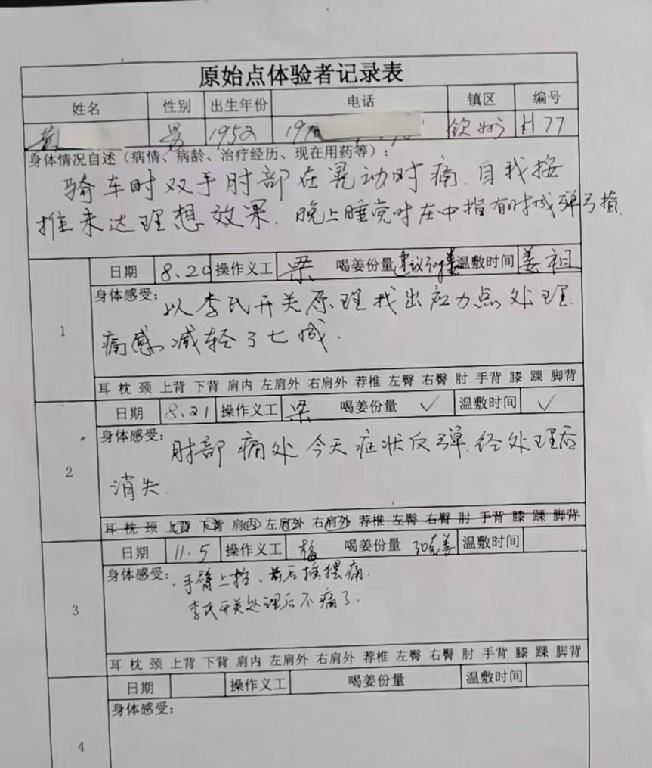 原始点体验者记录表
姓名 性别 出生年份 电话 镇区 编号
黄 男 1952 H77
身体情况自述（病情、病龄、治疗经历、现在用药等）：
骑车时双手肘部在晃动时痛.自我按
推未达理想效果.晚上睡觉时左中指有时成弹弓指.
日期 8.20 操作义工 梁 喝姜份量 温敷时间
身体感受： 以李氏开关原理找出应力点处理.
1
痛感减轻了七成.
耳 枕 颈 上背 下背 肩内 左肩外 右肩外 荐椎 左臀 右臀 肘 手背 膝 踝 脚背
日期 8.21 操作义工 梁 喝姜份量 ✓ 温敷时间 ✓
身体感受： 肘部痛处今天症状反弹.经处理后
2
消失.
耳 枕 颈 上背 下背 肩内 左肩外 右肩外 荐椎 左臀 右臀 肘 手背 膝 踝 脚背
日期 11.5 操作义工 梅 喝姜份量 30克姜 温敷时间
身体感受： 手臂上抬、前后摇摆痛.
李氏开关处理后不痛了.
3
耳 枕 颈 上背 下背 肩内 左肩外 右肩外 荐椎 左臀 右臀 肘 手背 膝 踝 脚背
日期 操作义工 喝姜份量 温敷时间
身体感受：
4